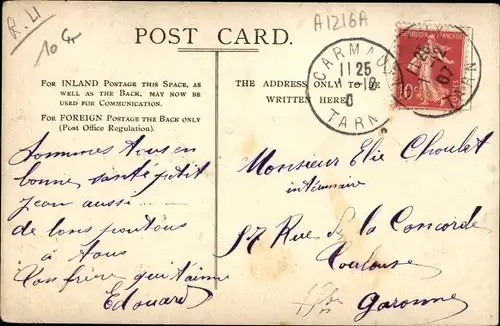 R.41
10 Fr
A1216A
POST CARD.
FOR INLAND POSTAGE THIS SPACE, AS
WELL AS THE BACK, MAY NOW BE
USED FOR COMMUNICATION.
FOR FOREIGN POSTAGE THE BACK ONLY
(Post Office Regulation).
THE ADDRESS ONLY TO BE
WRITTEN HERE
CARMAUX
11 25
TARN
RÉPUBLIQUE FRANÇAISE
10 c
07
Sommes tous en
bonne santé petit
Jean aussi
de bons
à tous
Ton frère qui t'aime
Edouard
Monsieur Elie Choulet
intérimaire
57 Rue de la Concorde
Toulouse
Garonne